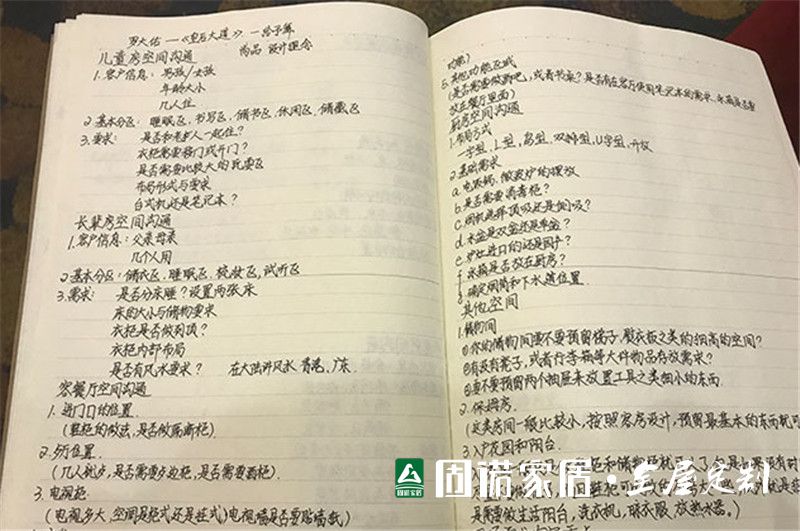 罗大佑 —《皇后大道》
尚品 设计理念
儿童房空间沟通
1.客户信息: 男孩/女孩
年龄大小
几人住.
2.基本分区: 睡眠区, 书写区, 储书区, 休闲区, 储藏区
3.要求: 是否和老人一起住?
衣柜需要移门或开门?
是否需要比较大的玩耍区
布局形式与要求
台式机还是笔记本?
长辈房空间沟通
1.客户信息: 父亲母亲
几个人用
2.基本分区: 储衣区, 睡眠区, 梳妆区, 试听区
3.需求: 是否分床睡? 设置两张床
床的大小与储物要求
衣柜是否做到顶?
衣柜内部布局
是否有风水要求? 在大陆讲风水 香港, 广东.
客餐厅空间沟通
1.进门口的位置.
(鞋柜的做法, 是否做隔断柜)
2.餐厅位置.
(几人就点, 是否需要边柜, 是否需要酒柜).
3.电视柜.
(电视多大, 空间是柜式还是挂式) 电视墙是否要贴墙纸)
功能)
5.其他功能区域
(是否需要做酒吧, 或者书桌? 是否有在客厅使用笔记本的需求, 冰箱是否要
放在餐厅里面)
厨房空间沟通
1.布局方式
一字型, L型, 岛型, 双排型, U字型, 开放
2.基础需求
a.电饭锅, 微波炉的摆放
b.是否需要消毒柜?
c.烟机选择顶吸还是侧吸?
d.水盆是双盆还是单盆?
e.炉灶进口的还是国产?
f.冰箱是否放在厨房?
g.确定烟筒和下水道位置.
其他空间
1.储物间
①你的储物间要不要预留梯子, 熨衣板之类的细高的空间?
②有没有凳子, 或者行李箱等大件物品存放需求?
③要不要预留两个抽屉来放置工具之类细小的东西.
2.保姆房.
(这类房间一般比较小, 按照客房设计, 预留最基本的东西就可
3.入户花园和阳台.
是需要做生活阳台, 洗衣机, 晾衣服, 放热水器,)
固诺家居
固诺家居·全屋定制